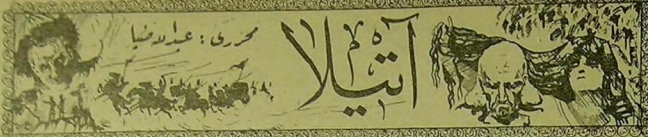 آتيلا
محررى : عبدالله ضيا